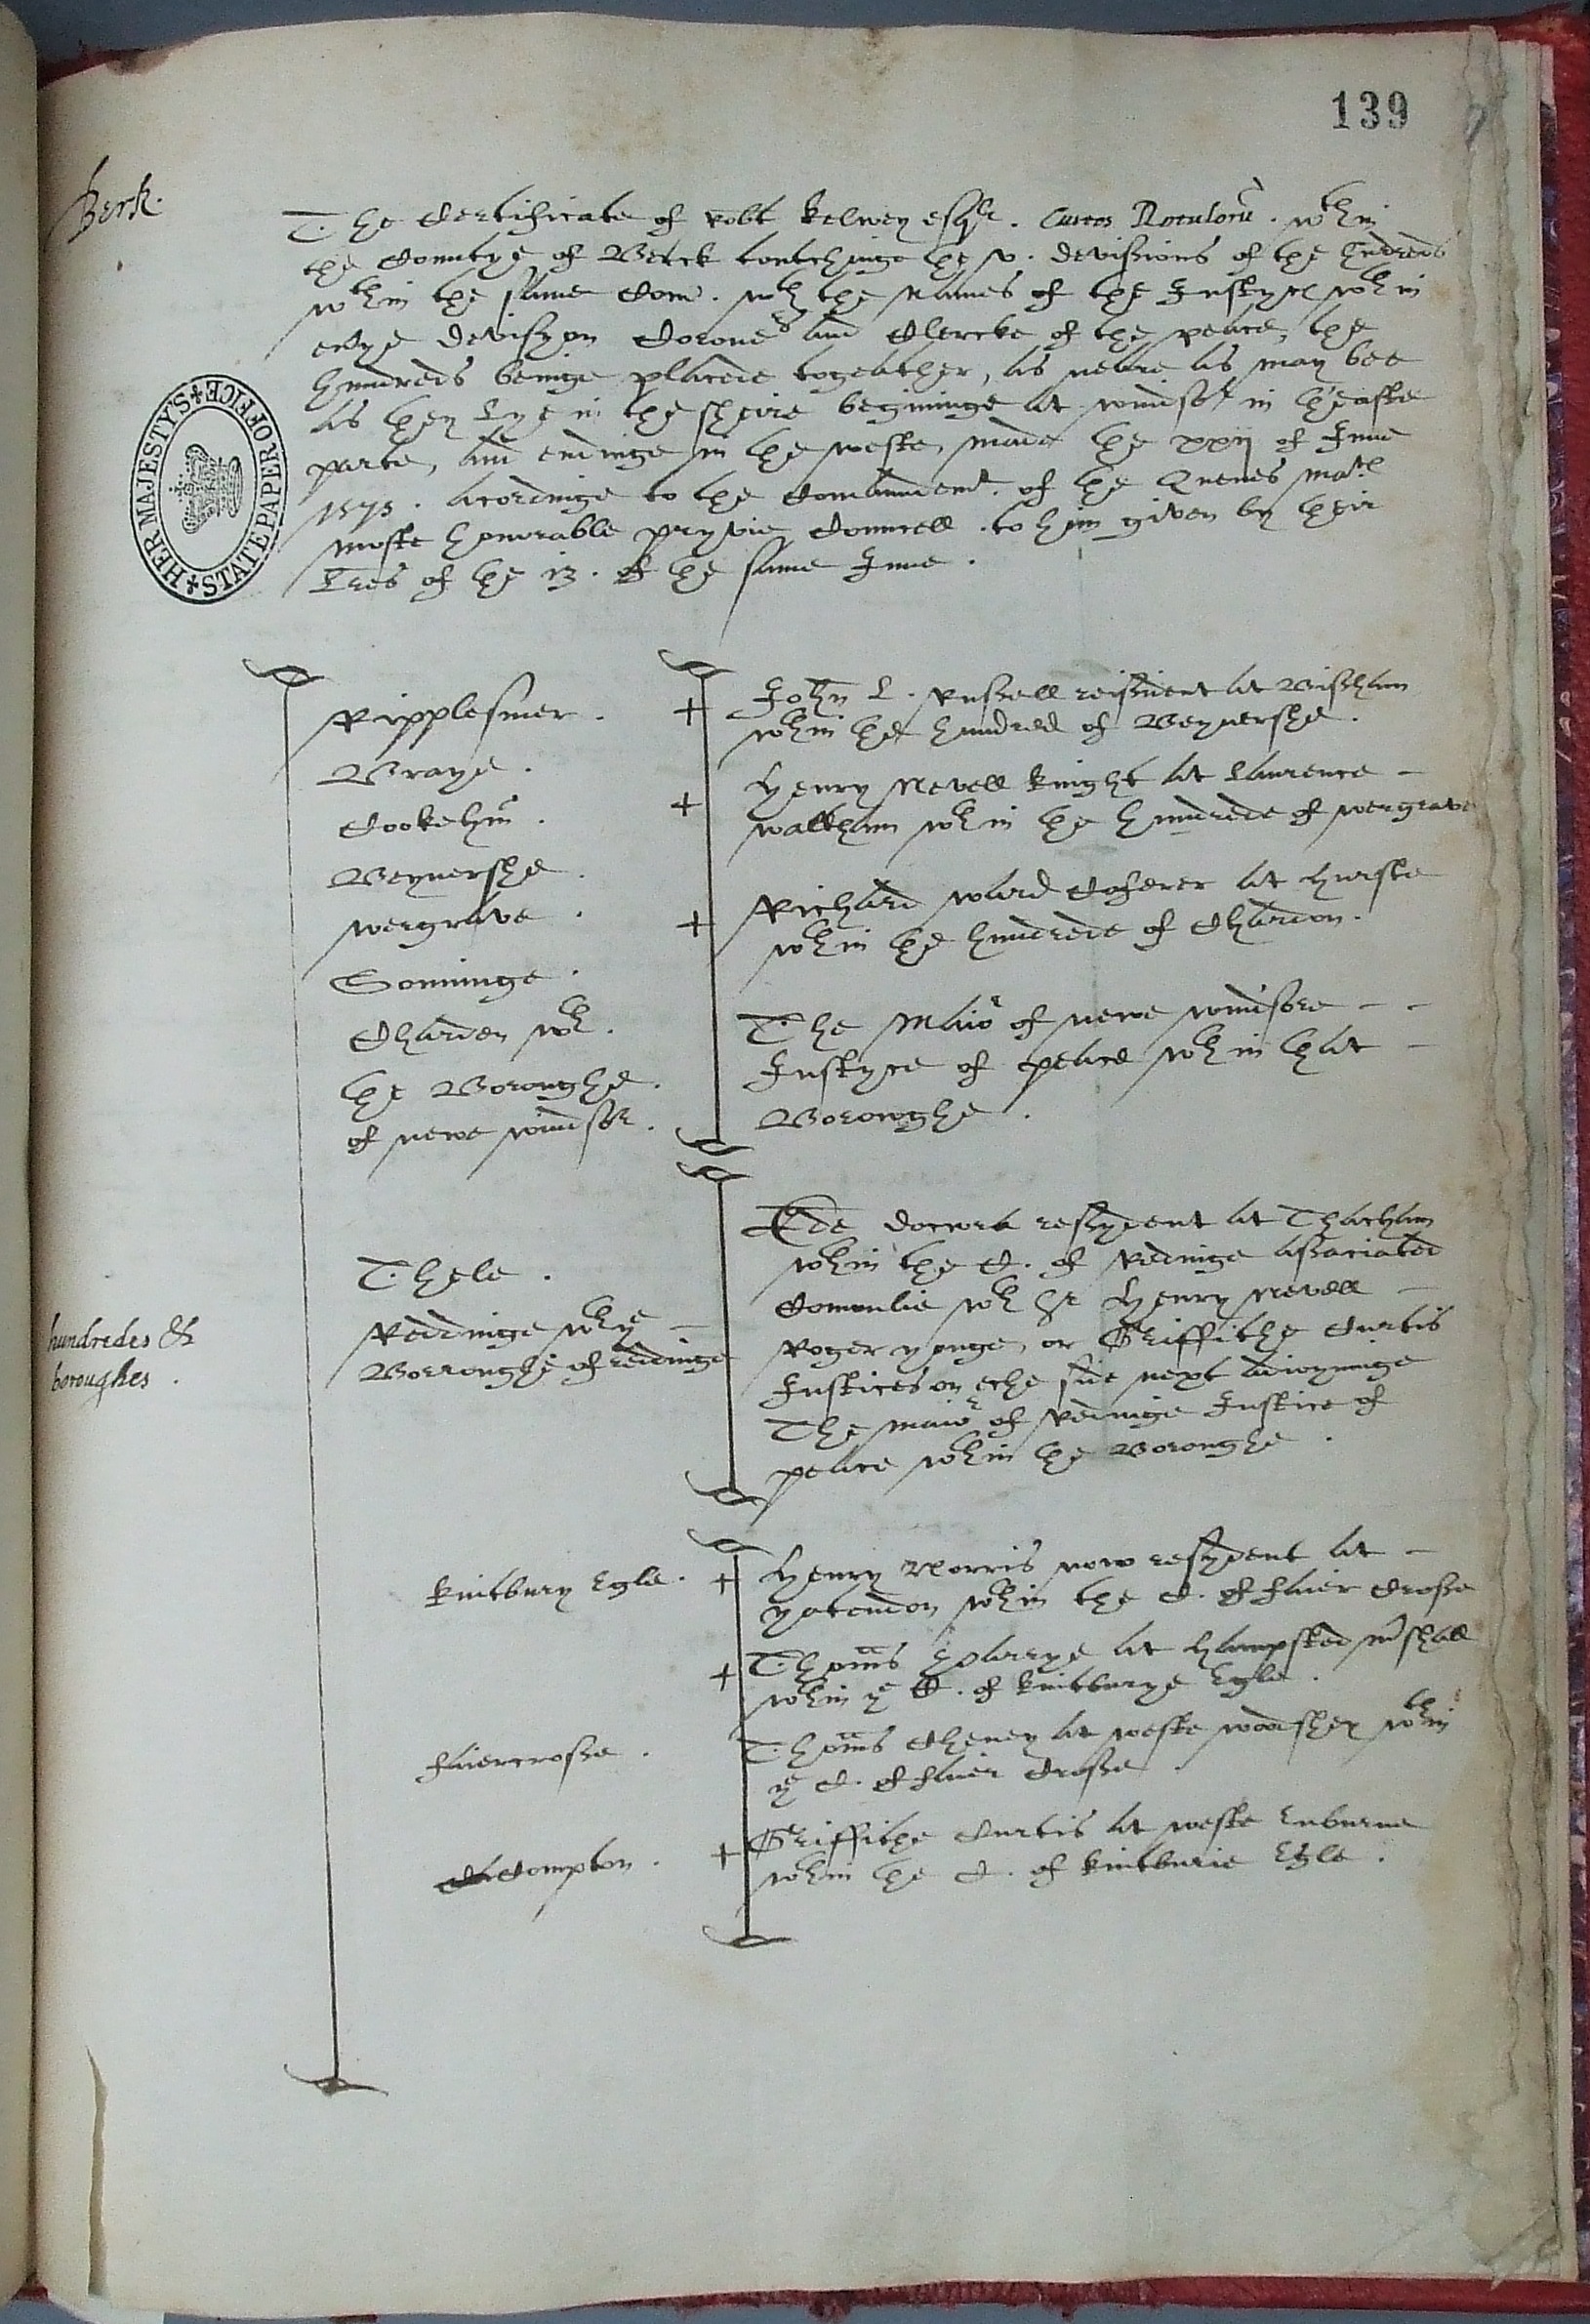 139
Berk.
The Certificate of Robt Kelwey esqr. Custos Rotulorū. wthin
the Countye of Berck towtchinge the v. devissions of the hundreds
wthin the same Com. wth the names of the Justyces wthin
evrye devisyon Coroners and Clercke of the peace, the
hundreds beinge placede togeather, as neare as may bee
as they Lye in the sheire beginninge at windsor in theaste
parte, and endinge in the weste, made the xxij of June
1575. acordinge to the Comaundemt. of the Quenes Mats
moste honorable pryvie Councell. to him given by their
Lres of the 13. of the same June.
HER MAJESTY'S STATE PAPER OFFICE
Ripplesmer.
Braye.
Cookehm.
Beynershe.
wergrave.
Sonninge.
Charden wth.
the Boroughe.
of newe windsor.
+ John L. Russell resident at Bissham
wthin the hundred of Beynershe.
+ Henry Nevell knight at Laurence
waltham wthin the hundrede of wergrave
+ Richard ward Coferer at hurste
wthin the hundrede of Chardon.
The Maior of newe windsore
Justyce of peace wthin that
Borowghe.
hundredes &
boroughes.
Thele.
Reddinge wth ye
Borroughe of reddinge
Ede docwra resydent at Thacham
wthin the C. of Redinge assaciated
Comonlie wth Sr Henry Nevell
Roger yonge, or Griffithe Curtis
Justices on eche side next adioyninge
The maior of Redinge Justice of
peace wthin the Boroughe.
kintbury Egle.
faiercrosse.
Compton.
+ Henry Norris now resydent at
yatendon wthin the C. of faier Crosse
+ Thoms at hampsted mrshall
wthin ye C. of kintburye Egle.
Thoms Cheney at weste woodshey wthin
ye C. of faier Crosse
+ Griffithe Curtis at weste Enburne
wthin the C. of kintburie Egle.